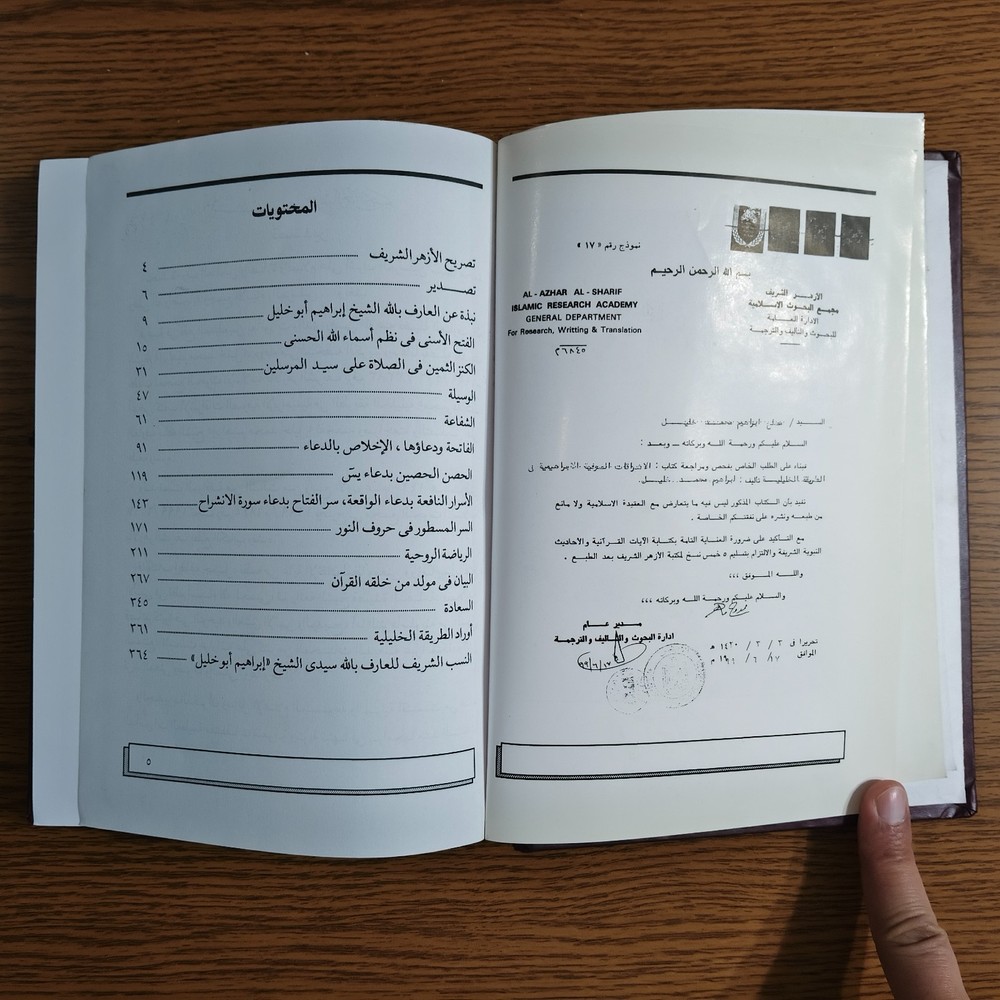 نموذج رقم «١٧»
بسم الله الرحمن الرحيم
الأزهر الشريف
مجمع البحوث الاسلامية
الادارة العامة
للبحوث والتأليف والترجمة
AL - AZHAR AL - SHARIF
ISLAMIC RESEARCH ACADEMY
GENERAL DEPARTMENT
For Research, Writting & Translation
٢٦٨٤٥
السيد / صلاح ابراهيم محمد خليل
السلام عليكم ورحمة الله وبركاته — وبعد :
فبناء على الطلب الخاص بفحص ومراجعة كتاب : الاشراقات الصوفية الابراهيمية فى
الطريقة الخليلية تأليف : ابراهيم محمد خليل.
نفيد بأن الكتاب المذكور ليس فيه ما يتعارض مع العقيدة الاسلامية ولا مانع
من طبعه ونشره على نفقتكم الخاصة .
مع التأكيد على ضرورة العناية التامة بكتابة الآيات القرآنية والأحاديث
النبوية الشريفة والالتزام بتسليم ٥ خمس نسخ لمكتبة الأزهر الشريف بعد الطبع .
واللـه الموفق ،،،
والسلام عليكم ورحمة الله وبركاته ،،،
مدير عـام
ادارة البحوث والتأليف والترجمة
تحريرا فى ٣ / ٣ / ١٤٢٠ هـ
الموافق ١٧ / ٦ / ١٩٩ م
المحتويات
تصريح الأزهر الشريف ٤
تصـــدير ٦
نبذة عن العارف بالله الشيخ إبراهيم أبو خليل ٩
الفتح الأسنى فى نظم أسماء الله الحسنى ١٥
الكنز الثمين فى الصلاة على سيد المرسلين ٣١
الوسيلة ٤٧
الشفاعة ٦١
الفاتحة ودعاؤها ، الإخلاص بالدعاء ٩١
الحصن الحصين بدعاء يسٓ ١١٩
الأسرار النافعة بدعاء الواقعة، سر الفتاح بدعاء سورة الانشراح ١٤٣
السر المسطور فى حروف النور ١٧١
الرياضة الروحية ٢١١
البيان فى مولد من خلقه القرآن ٢٦٧
السعادة ٣٤٥
أوراد الطريقة الخليلية ٣٦١
النسب الشريف للعارف بالله سيدى الشيخ «إبراهيم أبو خليل» ٣٦٤
٥